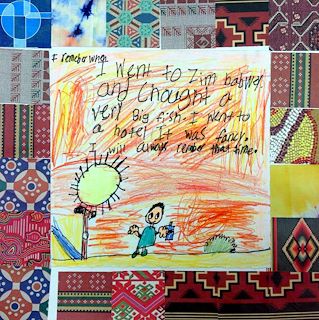 I remebo when
I went to Zimbabwe
and Chought a
very Big fish. I went to
a hotel It was fancy.
I will always rembo that time.